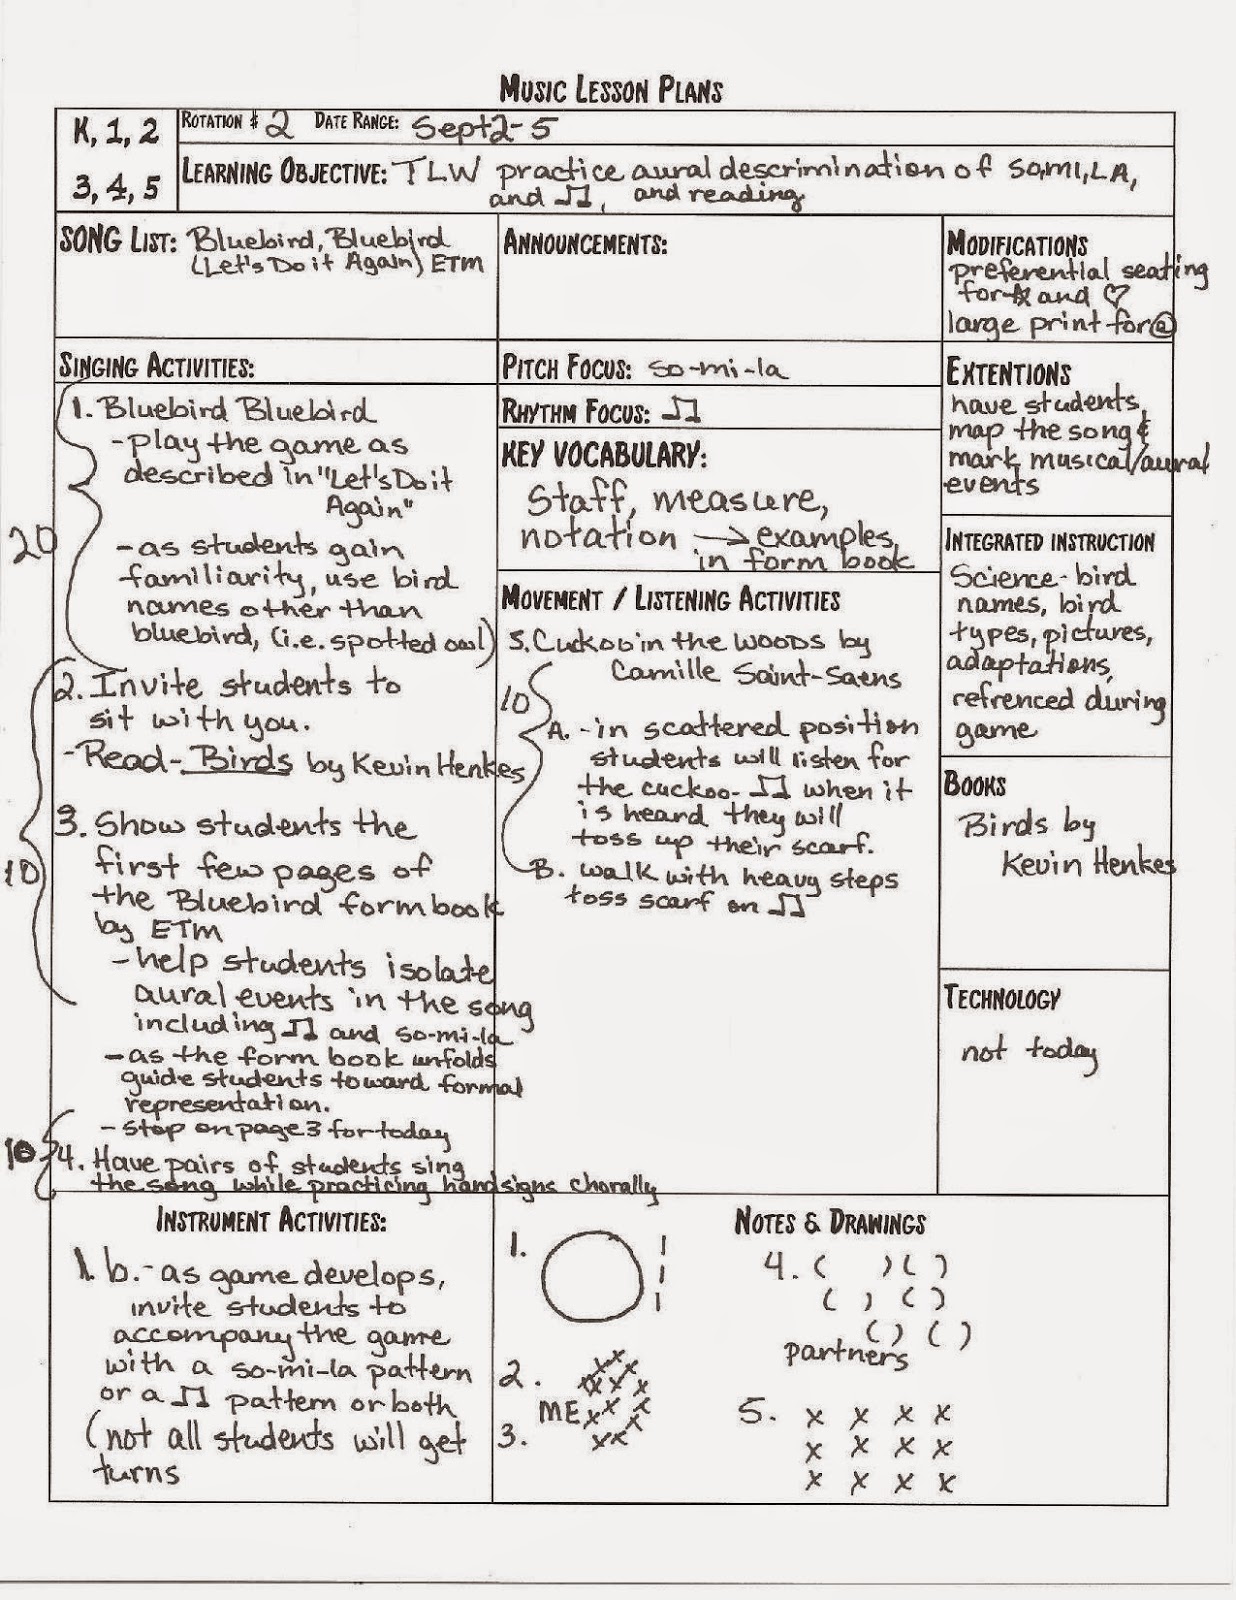 MUSIC LESSON PLANS
K, 1, 2
3, 4, 5
ROTATION # 2 DATE RANGE: Sept 2-5
LEARNING OBJECTIVE: TLW practice aural descrimination of SO,MI,LA,
and ♫, and reading
SONG LIST: Bluebird, Bluebird
(Let's Do it Again) ETM
ANNOUNCEMENTS:
MODIFICATIONS
preferential seating
for ☆ and ♡
large print for @
SINGING ACTIVITIES:
20
1. Bluebird Bluebird
- play the game as
described in "Let's Do it
Again"
- as students gain
familiarity, use bird
names other than
bluebird, (i.e. spotted owl)
10
2. Invite students to
sit with you.
- Read - Birds by Kevin Henkes
3. Show students the
first few pages of
the Bluebird form book
by ETM
- help students isolate
aural events in the song
including ♫ and so-mi-la
- as the form book unfolds
guide students toward formal
representation.
- stop on page 3 for today
10
4. Have pairs of students sing
the song while practicing handsigns chorally
PITCH FOCUS: so-mi-la
RHYTHM FOCUS: ♫
KEY VOCABULARY:
Staff, measure,
notation → examples
in form book
MOVEMENT / LISTENING ACTIVITIES
5. Cuckoo in the WOODS by
Camille Saint-Saens
10
A. - in scattered position
students will listen for
the cuckoo- ♫ when it
is heard they will
toss up their scarf.
B. walk with heavy steps
toss scarf on ♫
EXTENTIONS
have students,
map the song &
mark musical/aural
events
INTEGRATED INSTRUCTION
Science - bird
names, bird
types, pictures,
adaptations,
refrenced during
game
BOOKS
Birds by
Kevin Henkes
TECHNOLOGY
not today
INSTRUMENT ACTIVITIES:
1. b. - as game develops,
invite students to
accompany the game
with a so-mi-la pattern
or a ♫ pattern or both
(not all students will get
turns
NOTES & DRAWINGS
1.
2.
ME
3.
4. ( ) ( )
( ) ( )
( ) ( )
partners
5. x x x x
x x x x
x x x x